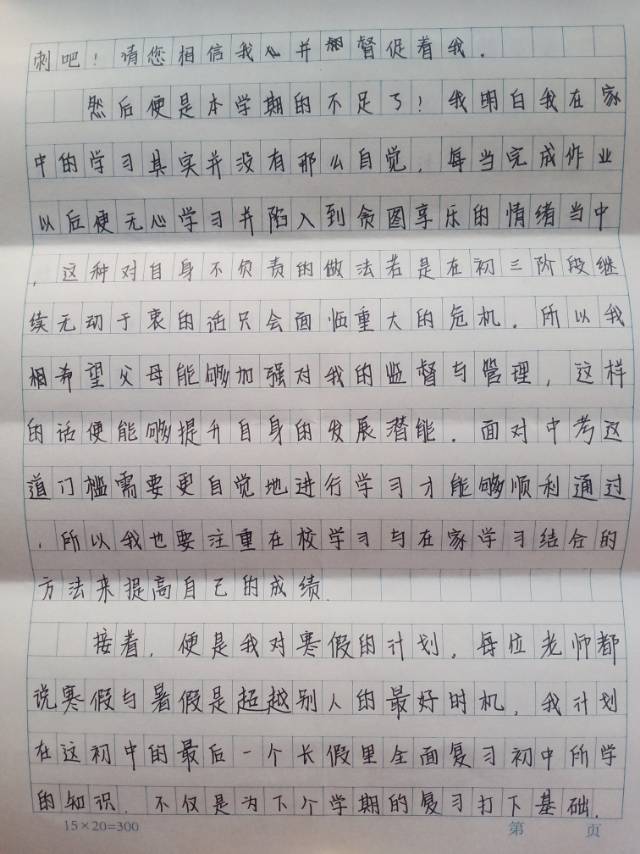 刺吧！请您相信我并督促着我．
然后便是本学期的不足了！我明白我在家
中的学习其实并没有那么自觉．每当完成作业
以后便无心学习并陷入到贪图享乐的情绪当中
，这种对自身不负责的做法若是在初三阶段继
续无动于衷的话只会面临重大的危机．所以我
相希望父母能够加强对我的监督与管理，这样
的话便能够提升自身的发展潜能．面对中考这
道门槛需要更自觉地进行学习才能够顺利通过
．所以我也要注重在校学习与在家学习结合的
方法来提高自己的成绩．
接着，便是我对寒假的计划，每位老师都
说寒假与暑假是超越别人的最好时机，我计划
在这初中的最后一个长假里全面复习初中所学
的知识．不仅是为下个学期的复习打下基础．
15×20=300 第 页